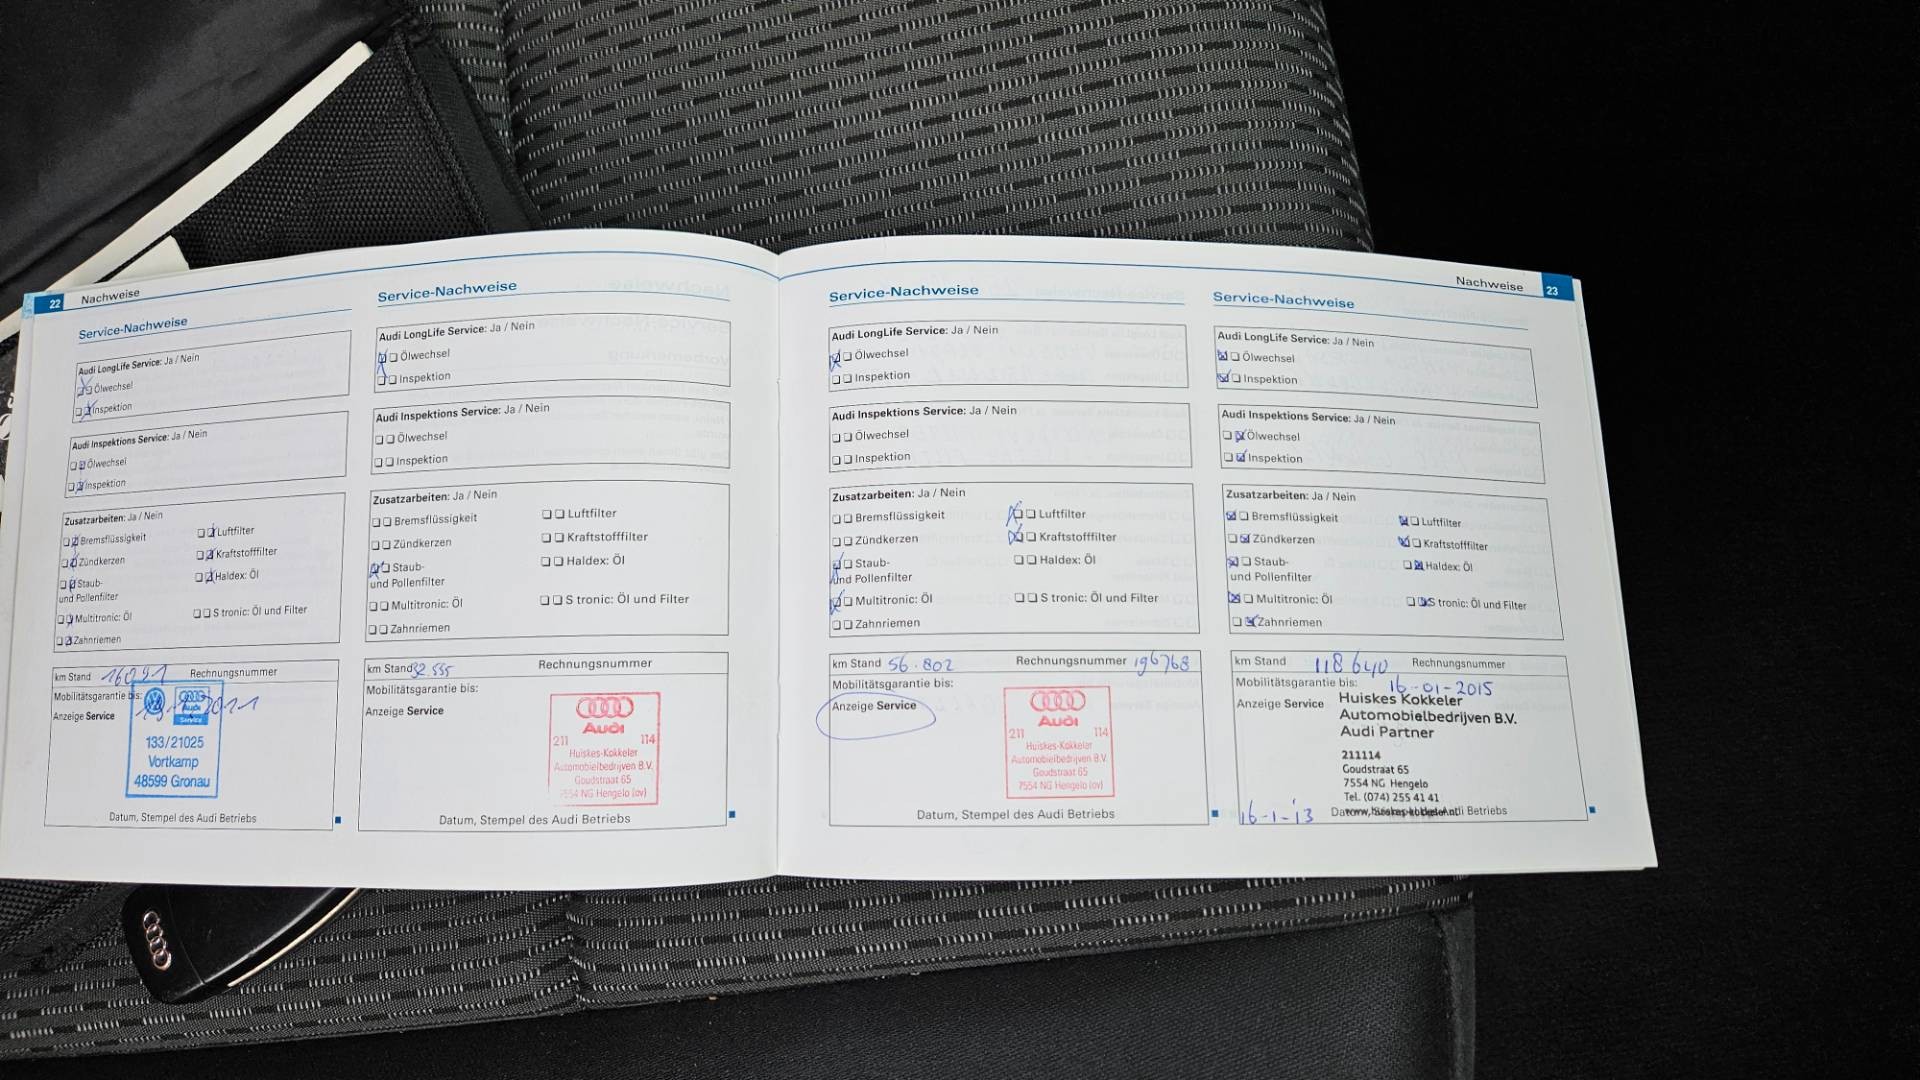 22 Nachweise
Service-Nachweise
Audi LongLife Service: Ja / Nein
Ölwechsel
Inspektion
Audi Inspektions Service: Ja / Nein
Ölwechsel
Inspektion
Zusatzarbeiten: Ja / Nein
Bremsflüssigkeit
Luftfilter
Zündkerzen
Kraftstofffilter
Staub-
und Pollenfilter
Haldex: Öl
Multitronic: Öl
S tronic: Öl und Filter
Zahnriemen
km Stand 16091 Rechnungsnummer
Mobilitätsgarantie bis:
Anzeige Service
Audi
Service
133/21025
Vortkamp
48599 Gronau
Datum, Stempel des Audi Betriebs
Service-Nachweise
Audi LongLife Service: Ja / Nein
Ölwechsel
Inspektion
Audi Inspektions Service: Ja / Nein
Ölwechsel
Inspektion
Zusatzarbeiten: Ja / Nein
Bremsflüssigkeit
Luftfilter
Zündkerzen
Kraftstofffilter
Staub-
und Pollenfilter
Haldex: Öl
Multitronic: Öl
S tronic: Öl und Filter
Zahnriemen
km Stand 32.555 Rechnungsnummer
Mobilitätsgarantie bis:
Anzeige Service
Audi
211 114
Huiskes-Kokkeler
Automobielbedrijven B.V.
Goudstraat 65
7554 NG Hengelo (ov)
Datum, Stempel des Audi Betriebs
Service-Nachweise
Audi LongLife Service: Ja / Nein
Ölwechsel
Inspektion
Audi Inspektions Service: Ja / Nein
Ölwechsel
Inspektion
Zusatzarbeiten: Ja / Nein
Bremsflüssigkeit
Luftfilter
Zündkerzen
Kraftstofffilter
Staub-
und Pollenfilter
Haldex: Öl
Multitronic: Öl
S tronic: Öl und Filter
Zahnriemen
km Stand 56.802 Rechnungsnummer 196768
Mobilitätsgarantie bis:
Anzeige Service
Audi
211 114
Huiskes-Kokkeler
Automobielbedrijven B.V.
Goudstraat 65
7554 NG Hengelo (ov)
Datum, Stempel des Audi Betriebs
Nachweise 23
Service-Nachweise
Audi LongLife Service: Ja / Nein
Ölwechsel
Inspektion
Audi Inspektions Service: Ja / Nein
Ölwechsel
Inspektion
Zusatzarbeiten: Ja / Nein
Bremsflüssigkeit
Luftfilter
Zündkerzen
Kraftstofffilter
Staub-
und Pollenfilter
Haldex: Öl
Multitronic: Öl
S tronic: Öl und Filter
Zahnriemen
km Stand 118640 Rechnungsnummer
Mobilitätsgarantie bis: 16-01-2015
Anzeige Service
Huiskes Kokkeler
Automobielbedrijven B.V.
Audi Partner
211114
Goudstraat 65
7554 NG Hengelo
Tel. (074) 255 41 41
16-1-13
Betriebs